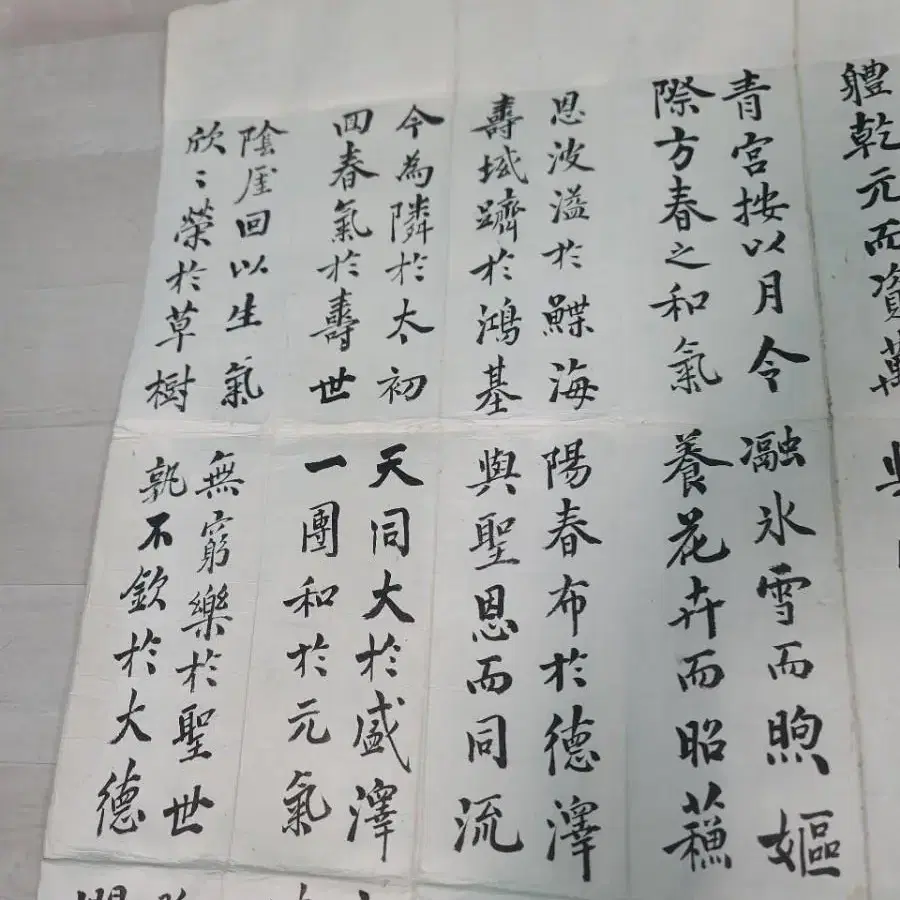 體乾元而資萬
青宮按以月令
際方春之和氣
恩波溢於鰈海
壽域躋於鴻基
今為隣於太初
囬春氣於壽世
陰崖回以生氣
欣〻榮於草樹
瀜氷雪而煦嫗
養花卉而昭蘓
陽春布於德澤
與聖恩而同流
天同大於盛澤
一團和於元氣
無窮樂於聖世
孰不欽於大德